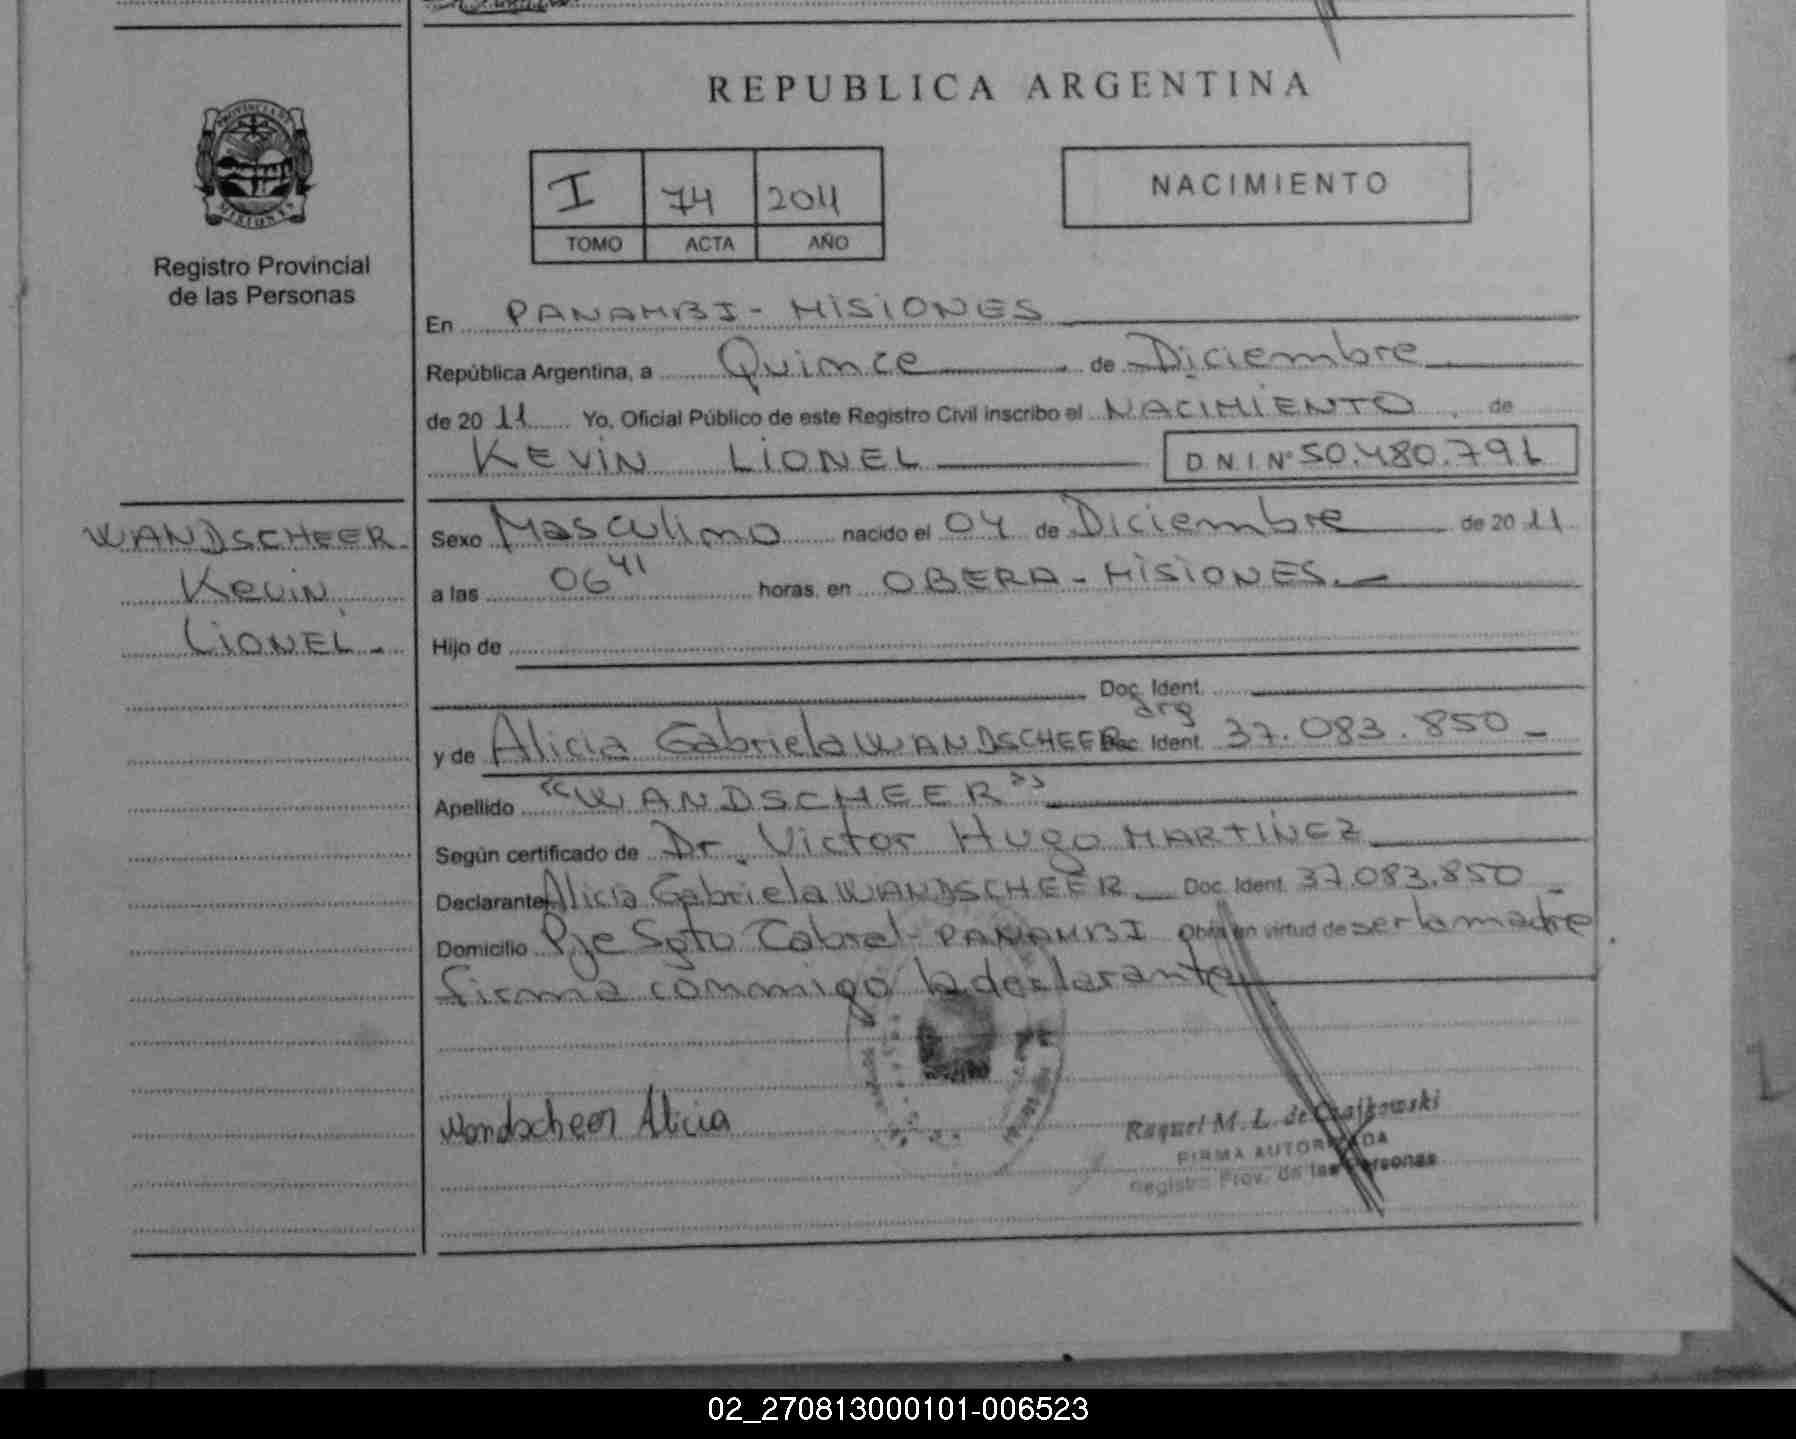 REPUBLICA ARGENTINA
PROVINCIA DE
MISIONES
Registro Provincial
de las Personas
I 74 2011
TOMO ACTA AÑO
NACIMIENTO
En PANAMBI - MISIONES
República Argentina, a Quince de Diciembre
de 20 11 Yo, Oficial Público de este Registro Civil inscribo el NACIMIENTO de
KEVIN LIONEL D.N.I. Nº 50.480.791
WANDSCHEER
Kevin
LIONEL -
Sexo Masculino nacido el 04 de Diciembre de 20 11
a las 06 41 horas, en OBERA - MISIONES. -
Hijo de
Doc. Ident.
y de Alicia Gabriela WANDSCHEER Doc. Ident. arg 37.083.850 -
Apellido "WANDSCHEER"
Según certificado de Dr. Victor Hugo MARTINEZ
Declarante Alicia Gabriela WANDSCHEER - Doc. Ident. 37.083.850 -
Domicilio Pje Sgto Cabral - PANAMBI Obra en virtud de ser la madre
firma conmigo la declarante
Wandscheer Alicia
Raquel M. L. de Czajkowski
FIRMA AUTORIZADA
Registro Prov. de las Personas
02_270813000101-006523